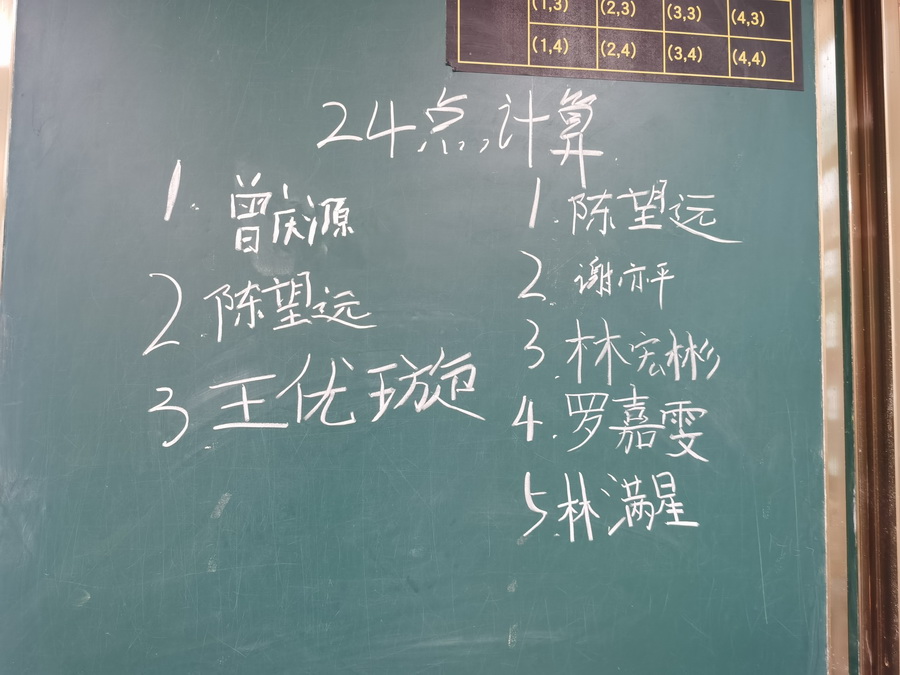 (1,3) (2,3) (3,3) (4,3)
(1,4) (2,4) (3,4) (4,4)
24点计算
1. 曾庆源
2. 陈望远
3 王优璇
1. 陈望远
2. 谢亦平
3. 林宏彬
4. 罗嘉雯
5. 林满星